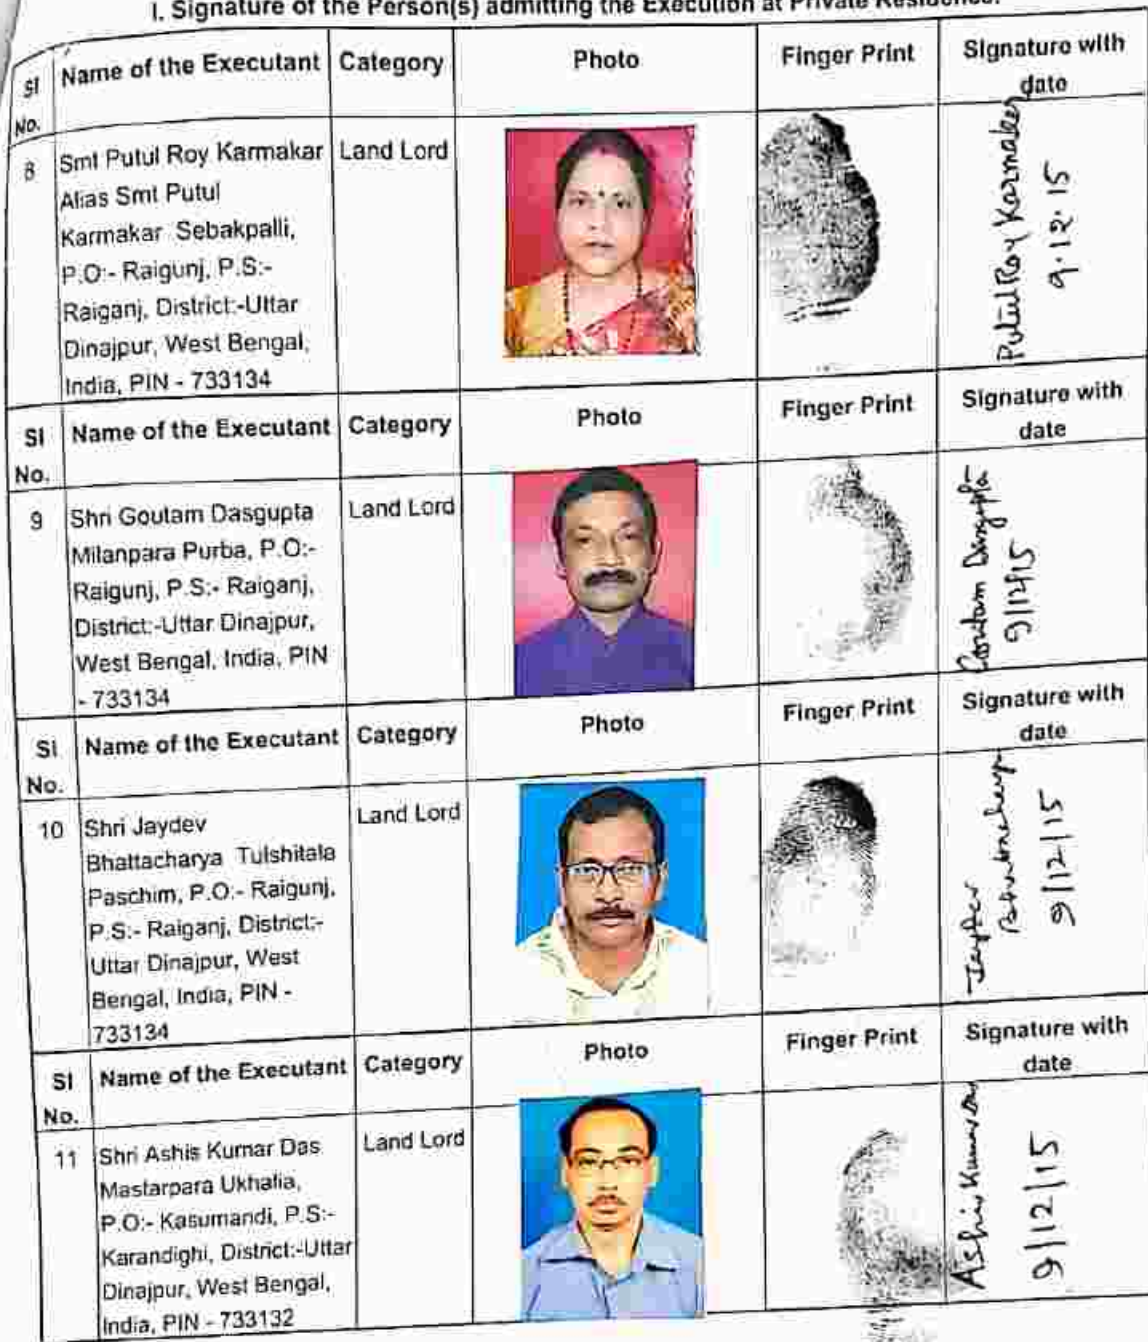 I. Signature of the Person(s) admitting the Execution at Private Residence.
Sl No. Name of the Executant Category Photo Finger Print Signature with date
8 Smt Putul Roy Karmakar Land Lord
Alias Smt Putul
Karmakar Sebakpalli,
P.O:- Raigunj, P.S:-
Raiganj, District:-Uttar
Dinajpur, West Bengal,
India, PIN - 733134
Putul Roy Karmakar
9.12.15
Sl No. Name of the Executant Category Photo Finger Print Signature with date
9 Shri Goutam Dasgupta Land Lord
Milanpara Purba, P.O:-
Raigunj, P.S:- Raiganj,
District:-Uttar Dinajpur,
West Bengal, India, PIN
- 733134
Goutam Dasgupta
9/12/15
Sl No. Name of the Executant Category Photo Finger Print Signature with date
10 Shri Jaydev Land Lord
Bhattacharya Tulshitala
Paschim, P.O:- Raigunj,
P.S:- Raiganj, District:-
Uttar Dinajpur, West
Bengal, India, PIN -
733134
Jaydev
Bhattacharya
9/12/15
Sl No. Name of the Executant Category Photo Finger Print Signature with date
11 Shri Ashis Kumar Das Land Lord
Mastarpara Ukhalia,
P.O:- Kasumandi, P.S:-
Karandighi, District:-Uttar
Dinajpur, West Bengal,
India, PIN - 733132
Ashis Kumar Das
9/12/15